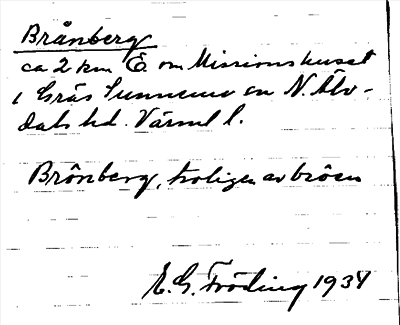 Brånberg
ca 2 km E. om Missionshuset
i Gräs Sunnemo sn N. Älv-
dals hd. Värml l.
Brônberg, troligen av brôen
E. G. Fröding 1934